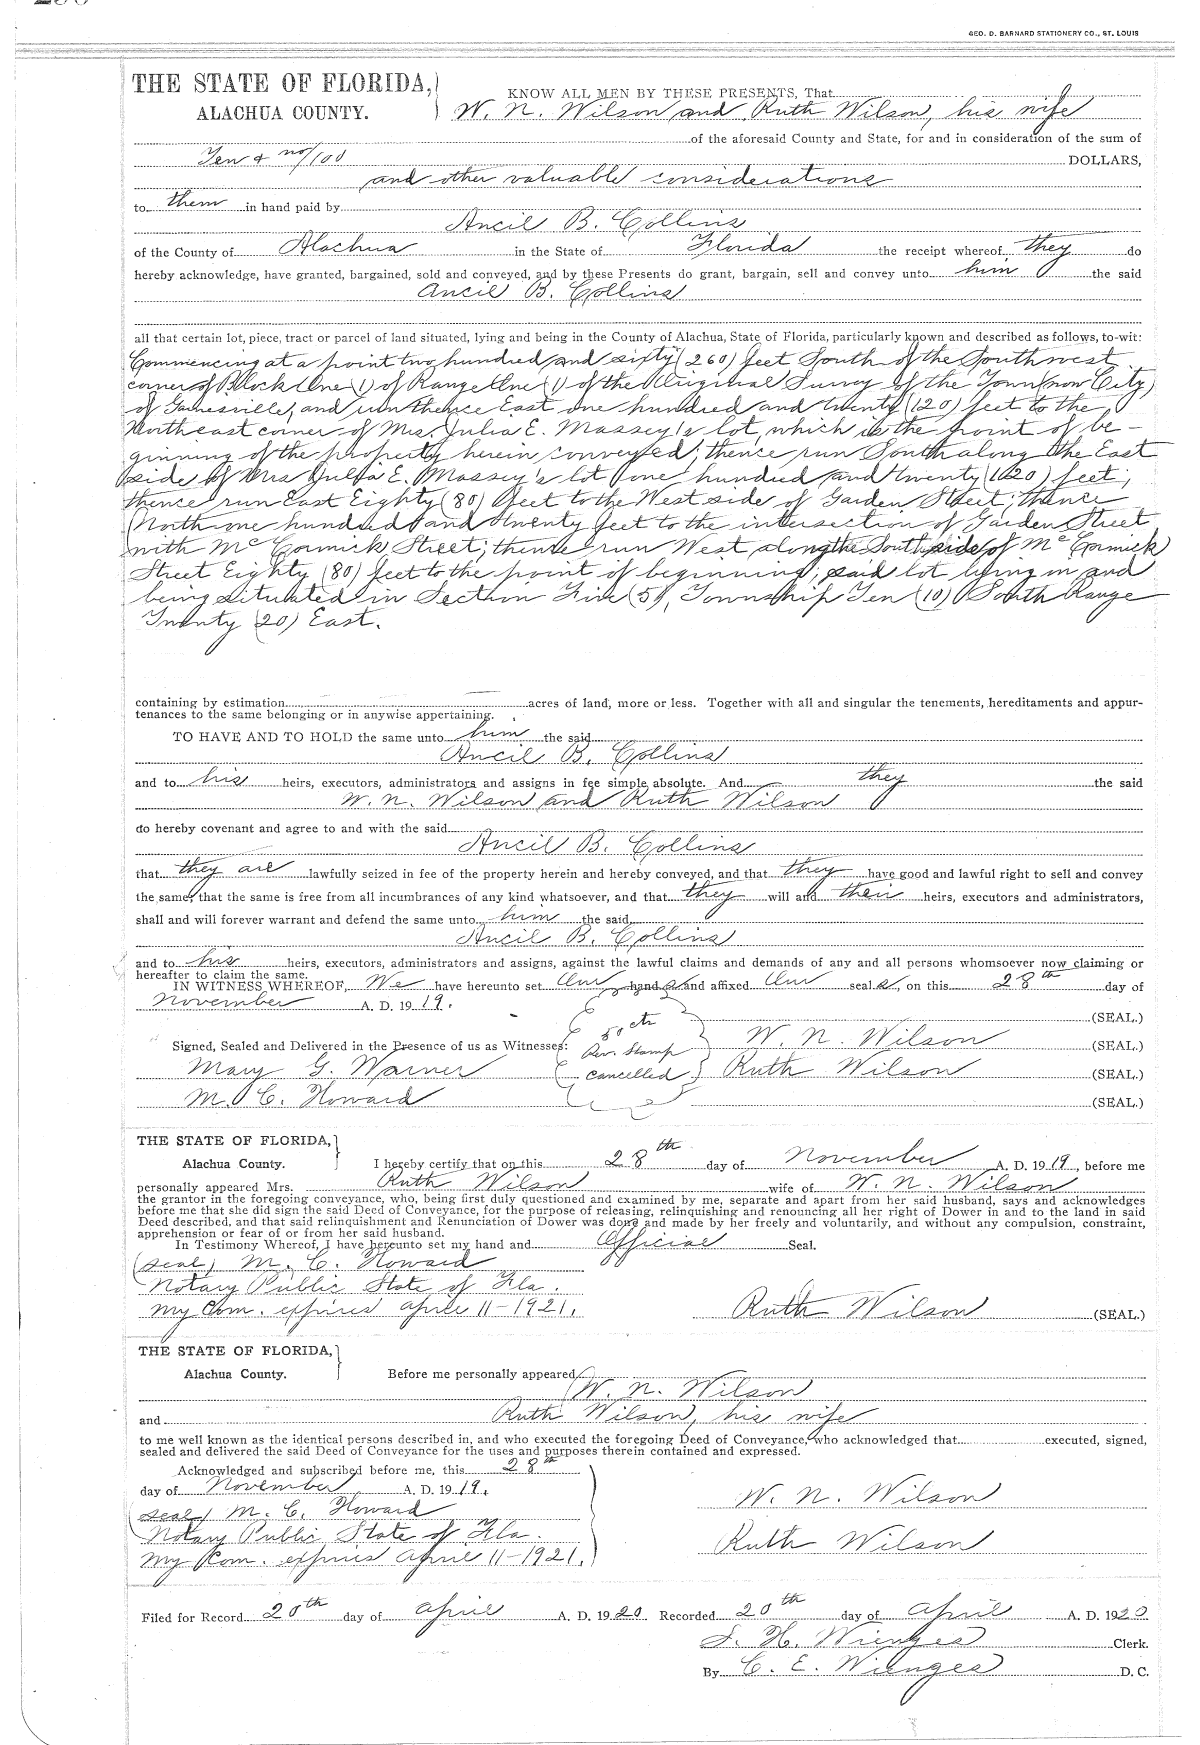 GEO. D. BARNARD STATIONERY CO., ST. LOUIS
THE STATE OF FLORIDA,
ALACHUA COUNTY.
KNOW ALL MEN BY THESE PRESENTS, That
W. N. Wilson and Ruth Wilson, his wife
of the aforesaid County and State, for and in consideration of the sum of
Ten & no/100 DOLLARS,
and other valuable considerations
to them in hand paid by
Ancil B. Collins
of the County of Alachua in the State of Florida the receipt whereof they do
hereby acknowledge, have granted, bargained, sold and conveyed, and by these Presents do grant, bargain, sell and convey unto him the said
Ancil B. Collins
all that certain lot, piece, tract or parcel of land situated, lying and being in the County of Alachua, State of Florida, particularly known and described as follows, to-wit:
Commencing at a point two hundred and sixty (260) feet South of the Southwest
corner of Block One (1) of Range One (1) of the Original Survey of the Town (now City)
of Gainesville, and run thence East one hundred and twenty (120) feet to the
Northeast corner of Mrs. Julia E. Massey's lot, which is the point of be-
ginning of the property herein conveyed; thence run South along the East
side of Mrs Julia E. Massey's lot one hundred and twenty (120) feet;
thence run East Eighty (80) feet to the West side of Garden Street; thence
North one hundred and twenty feet to the intersection of Garden Street
with McCormick Street; thence run West along the South side of McCormick
Street Eighty (80) feet to the point of beginning; said lot lying in and
being situated in Section Five (5), Township Ten (10) South Range
Twenty (20) East.
containing by estimation acres of land, more or less. Together with all and singular the tenements, hereditaments and appur-
tenances to the same belonging or in anywise appertaining.
TO HAVE AND TO HOLD the same unto him the said
Ancil B. Collins
and to his heirs, executors, administrators and assigns in fee simple absolute. And they the said
W. N. Wilson and Ruth Wilson
do hereby covenant and agree to and with the said
Ancil B. Collins
that they are lawfully seized in fee of the property herein and hereby conveyed, and that they have good and lawful right to sell and convey
the same; that the same is free from all incumbrances of any kind whatsoever, and that they will and their heirs, executors and administrators,
shall and will forever warrant and defend the same unto him the said
Ancil B. Collins
and to his heirs, executors, administrators and assigns, against the lawful claims and demands of any and all persons whomsoever now claiming or
hereafter to claim the same.
IN WITNESS WHEREOF, We have hereunto set Our hand s and affixed Our seal s, on this 28th day of
November A. D. 1919.
(SEAL.)
Signed, Sealed and Delivered in the Presence of us as Witnesses: 50 cts W. N. Wilson (SEAL.)
Mary G. Warner Rev. Stamp Ruth Wilson (SEAL.)
M. C. Howard Cancelled (SEAL.)
THE STATE OF FLORIDA,
Alachua County. I hereby certify that on this 28th day of November A. D. 1919, before me
personally appeared Mrs. Ruth Wilson wife of W. N. Wilson
the grantor in the foregoing conveyance, who, being first duly questioned and examined by me, separate and apart from her said husband, says and acknowledges
before me that she did sign the said Deed of Conveyance, for the purpose of releasing, relinquishing and renouncing all her right of Dower in and to the land in said
Deed described, and that said relinquishment and Renunciation of Dower was done and made by her freely and voluntarily, and without any compulsion, constraint,
apprehension or fear of or from her said husband.
In Testimony Whereof, I have hereunto set my hand and Official Seal.
(seal) M. C. Howard
Notary Public State of Fla.
My Com. expires April 11-1921. Ruth Wilson (SEAL.)
THE STATE OF FLORIDA,
Alachua County. Before me personally appeared
W. N. Wilson
and Ruth Wilson, his wife
to me well known as the identical persons described in, and who executed the foregoing Deed of Conveyance, who acknowledged that executed, signed,
sealed and delivered the said Deed of Conveyance for the uses and purposes therein contained and expressed.
Acknowledged and subscribed before me, this 28th
day of November A. D. 1919. W. N. Wilson
(seal) M. C. Howard
Notary Public State of Fla. Ruth Wilson
My Com. expires April 11-1921.
Filed for Record 20th day of April A. D. 1920 Recorded 20th day of April A. D. 1920
S. H. Wienges Clerk.
By C. E. Wienges D. C.